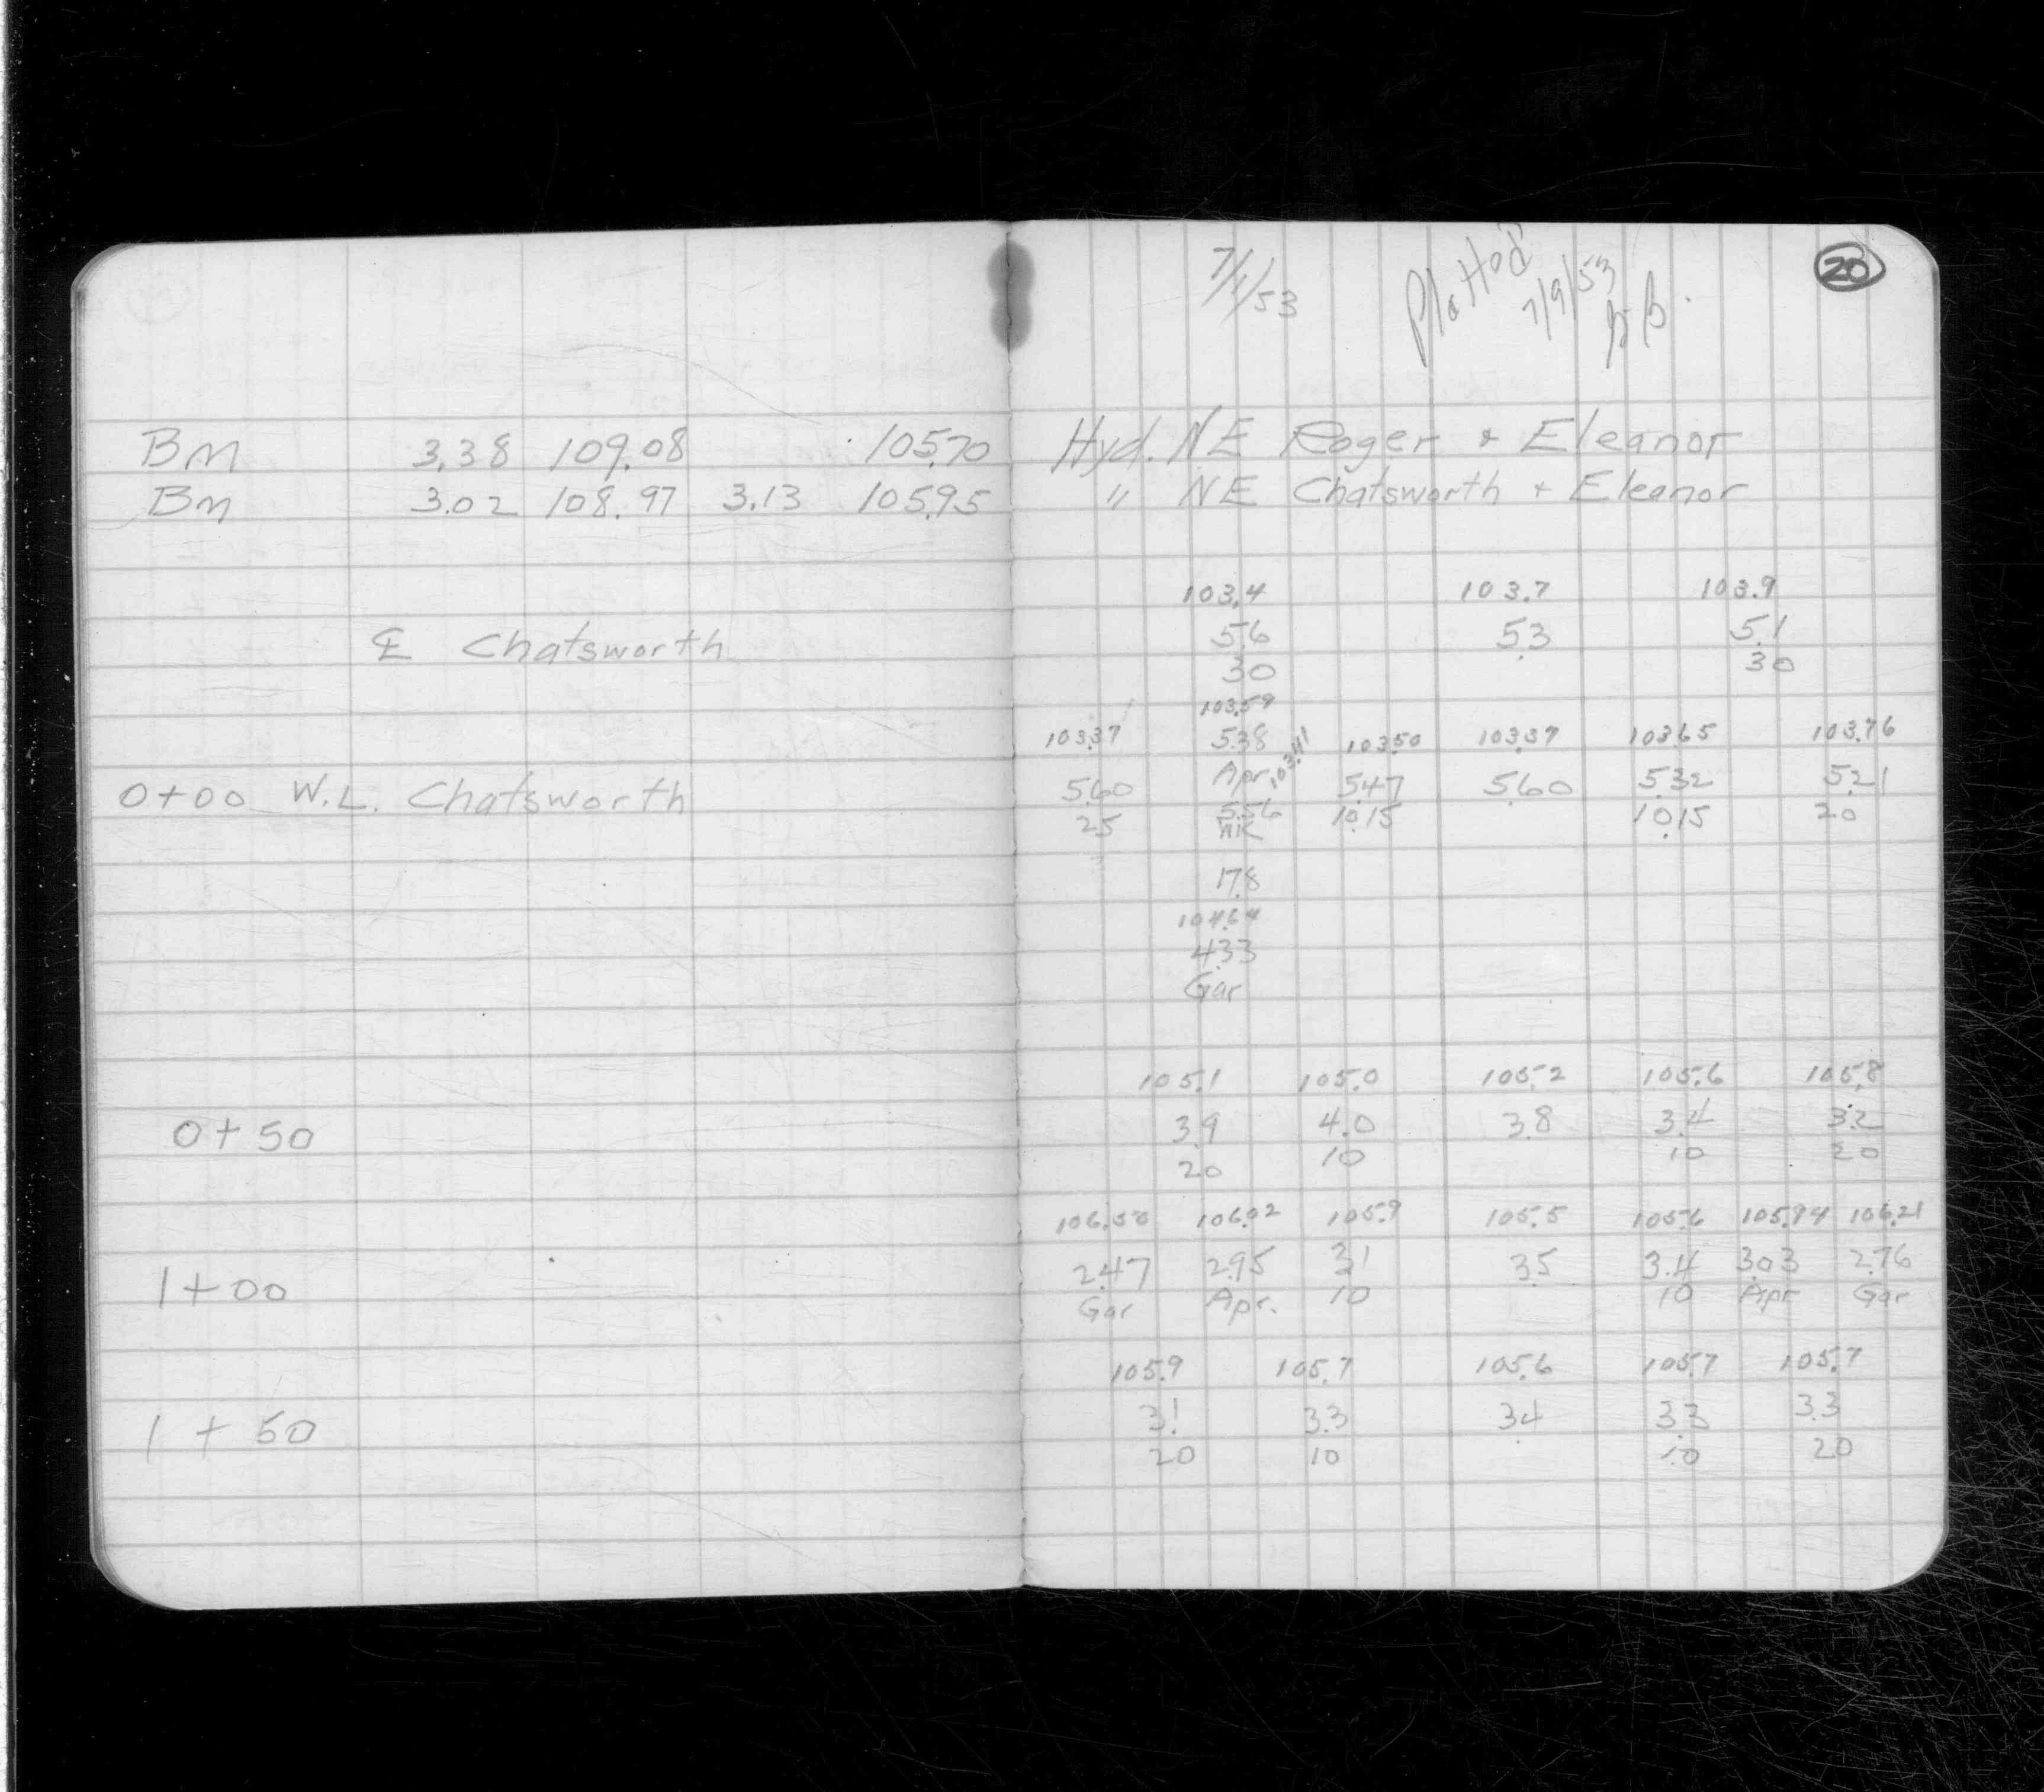 7/1/53 Plotted 7/9/53
20
BM 3.38 109.08 105.70 Hyd. NE Roger + Eleanor
BM 3.02 108.97 3.13 105.95 " NE Chatsworth + Eleanor
103.4 103.7 103.9
℄ Chatsworth 5.6 5.3 5.1
30 30
103.59
103.37 5.38 103.41 103.50 103.37 103.65 103.76
Apr
0+00 W.L. Chatsworth 5.60 5.47 5.60 5.32 5.21
25 5.56 10.15 10.15 20
WK
17.8
104.64
4.33
Gar
105.1 105.0 105.2 105.6 105.8
0+50 3.9 4.0 3.8 3.4 3.2
20 10 10 20
106.50 106.02 105.9 105.5 105.6 105.94 106.21
1+00 2.47 2.95 3.1 3.5 3.4 3.03 2.76
Gar Apr. 10 10 Apr Gar
105.9 105.7 105.6 105.7 105.7
1+50 3.1 3.3 3.4 3.3 3.3
20 10 10 20